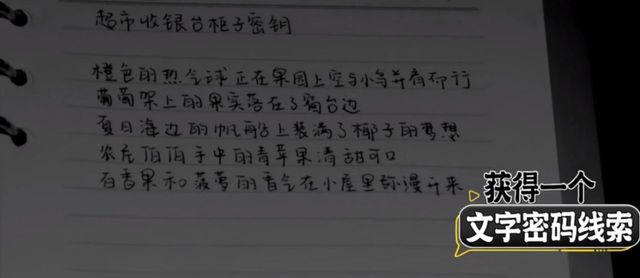 超市收银台柜子密钥
橙色的热气球正在果园上空与小鸟并肩而行
葡萄架上的果实落在了窗台边
夏日海边的帆船上装满了椰子的梦想
农庄伯伯手中的青苹果清甜可口
百香果和菠萝的香气在小屋里弥漫开来
获得一个
文字密码线索